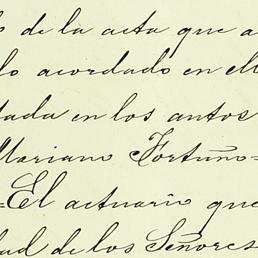 de la acta que a
lo acordado en el
dada en los autos
Mariano Fortuño=
=El actuario que
dad de los Señores